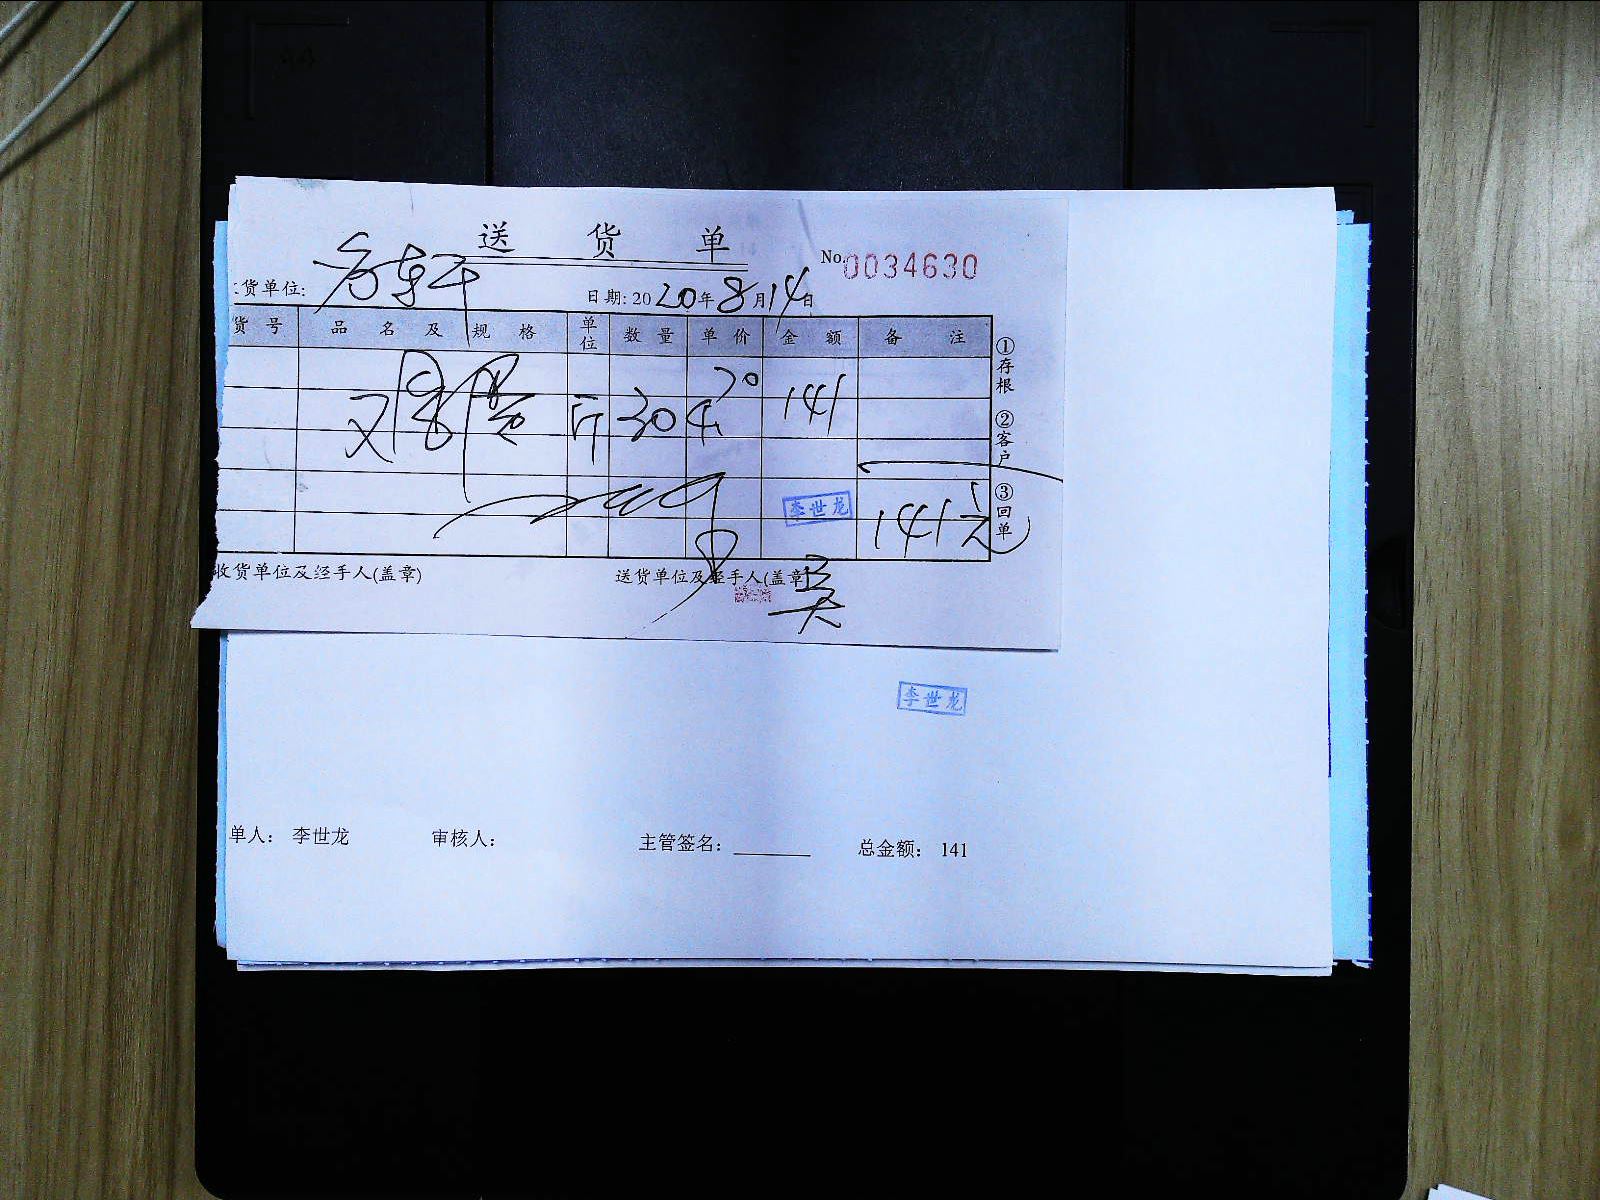 送 货 单
No. 0034630
货单位: 方轩 日期: 2020年8月14日
货 号 品 名 及 规 格 单位 数 量 单 价 金 额 备 注
斤 30 4.70 141
李世龙 141元
①存根 ②客户 ③回单
收货单位及经手人(盖章) 送货单位及经手人(盖章) 吴
李世龙
单人: 李世龙 审核人: 主管签名: 总金额: 141